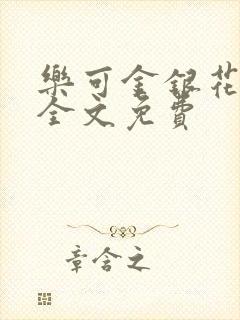 樂可金銀花
全文免費
章含之